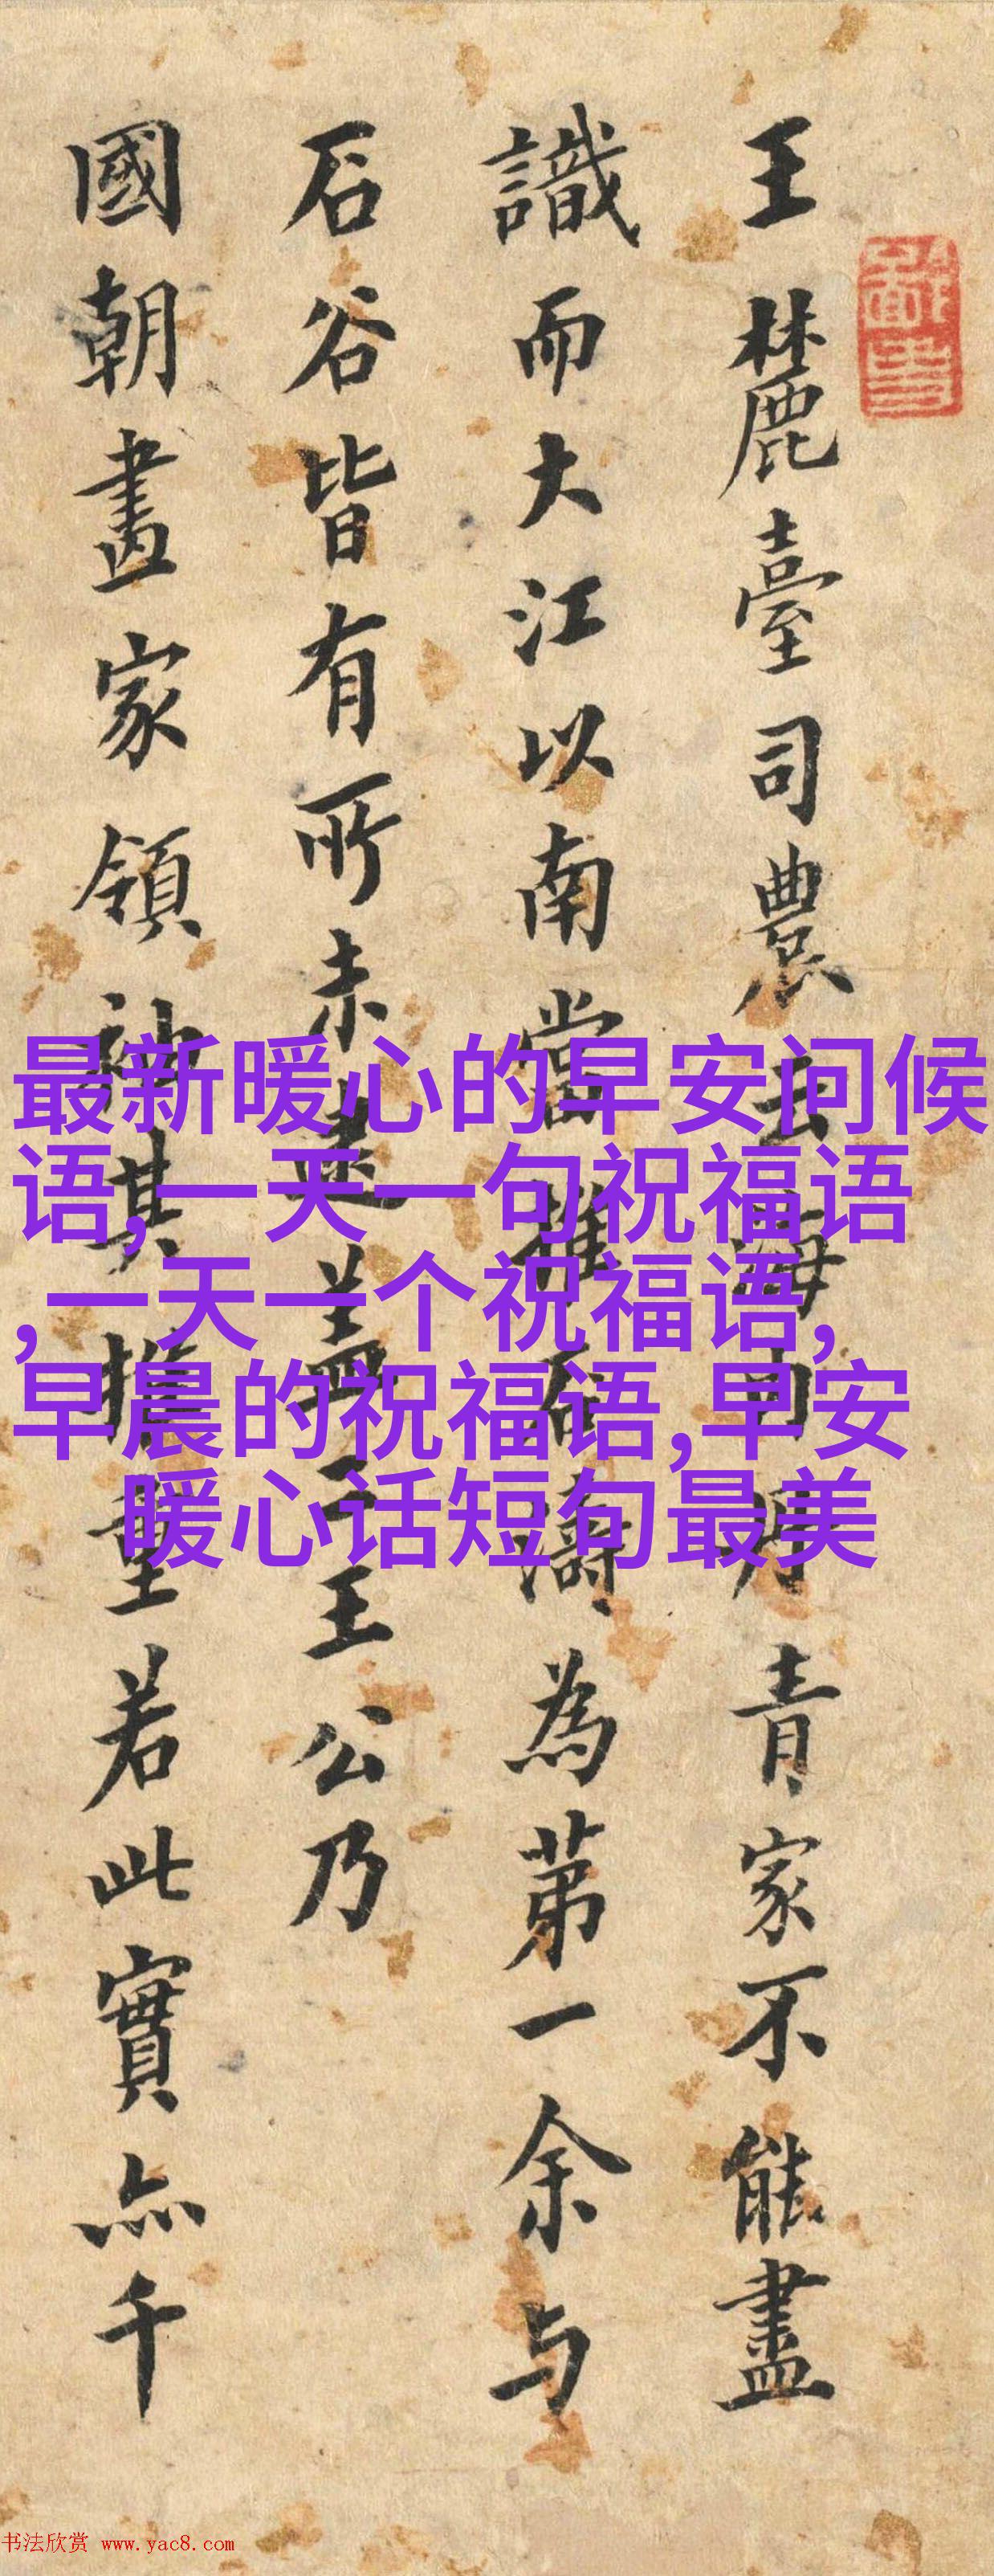 王麓臺司農云海內丹青家不能盡
識而大江以南當推石濤為第一余与
石谷皆有所未逮蓋二王公乃
國朝畫家領袖其推重若此實亦千
最新暖心的早安问候
语,一天一句祝福语
,一天一个祝福语,
早晨的祝福语,早安
暖心话短句最美
书法欣赏 www.yac8.com